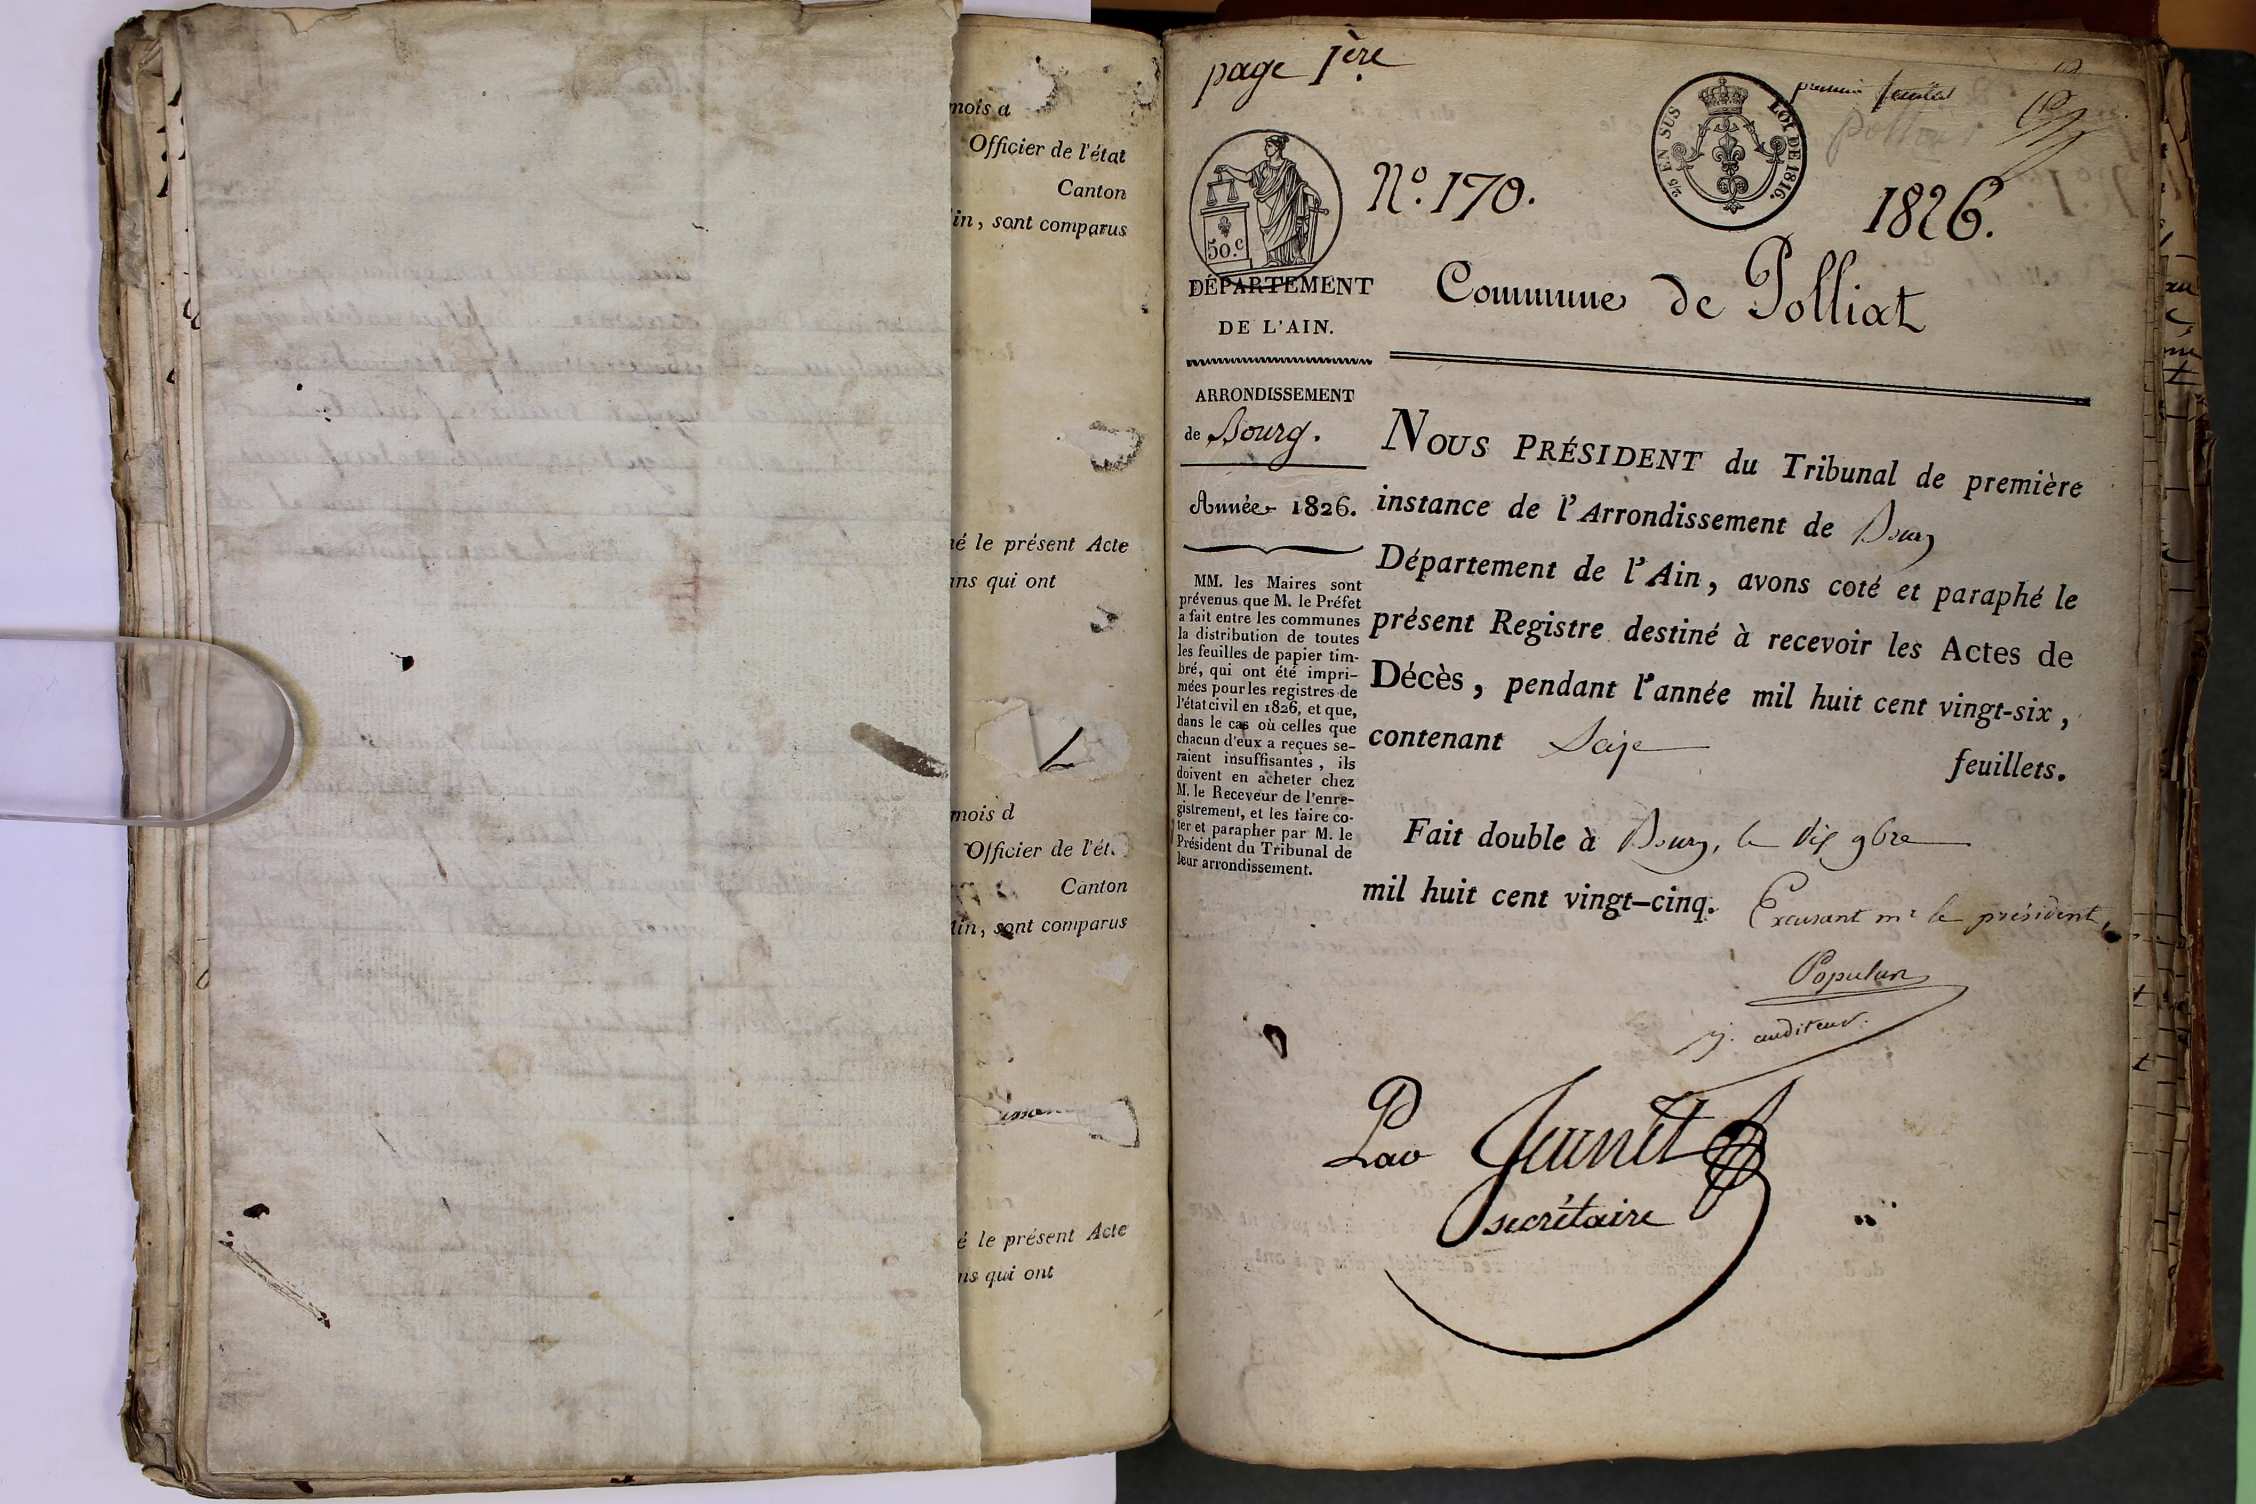 mois a
Officier de l'état
Canton
in, sont comparus
né le présent Acte
ans qui ont
mois d
Officier de l'ét
Canton
Ain, sont comparus
é le présent Acte
ns qui ont
page 1ère
premier feuillet
25 EN SUS
LOI DE 1816.
50.c
N.o 170.
1826.
DÉPARTEMENT
DE L'AIN.
Commune de Polliat
ARRONDISSEMENT
de Bourg.
Année 1826.
MM. les Maires sont
prévenus que M. le Préfet
a fait entre les communes
la distribution de toutes
les feuilles de papier tim-
bré, qui ont été impri-
mées pour les registres de
l'état civil en 1826, et que,
dans le cas où celles que
chacun d'eux a reçues se-
raient insuffisantes, ils
doivent en acheter chez
M. le Receveur de l'enre-
gistrement, et les faire co-
ter et parapher par M. le
Président du Tribunal de
leur arrondissement.
NOUS PRÉSIDENT du Tribunal de première
instance de l'Arrondissement de Bourg
Département de l'Ain, avons coté et paraphé le
présent Registre destiné à recevoir les Actes de
Décès, pendant l'année mil huit cent vingt-six,
contenant Seize feuillets.
Fait double à Bourg, le dix 9bre
mil huit cent vingt-cinq. Excusant mr le président,
Populus
j. auditeur.
Par Jeunet
secrétaire